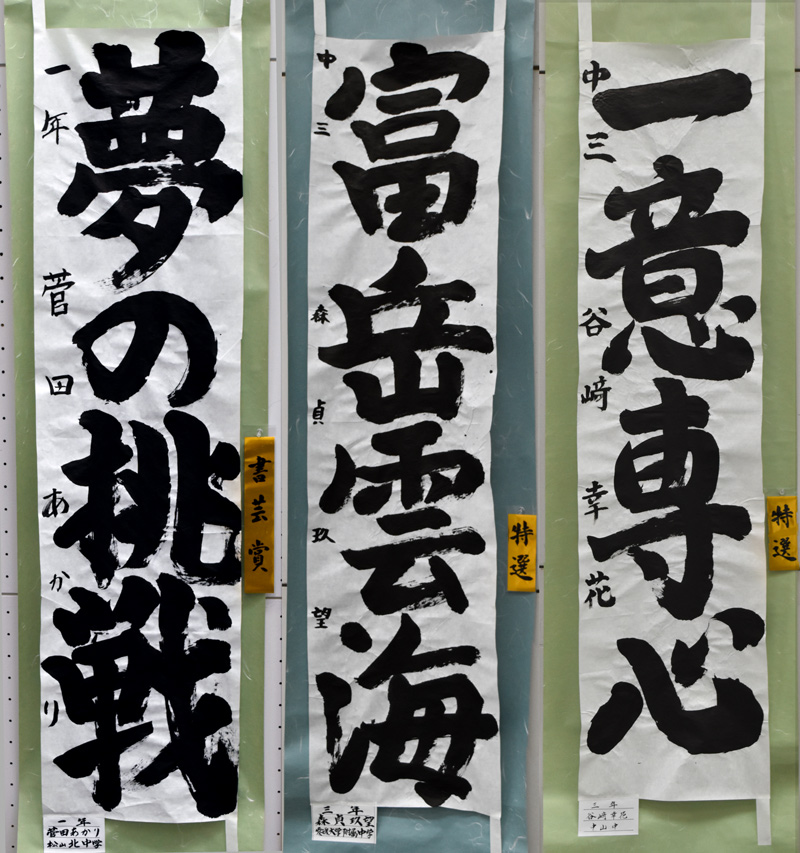 夢の挑戦
一年 菅田あかり
書芸賞
一年
菅田あかり
松山北中学
富岳雲海
中三 森貞玖望
特選
三年
森貞玖望
愛媛大学附属中学
一意専心
中三 谷﨑幸花
特選
三年
谷﨑幸花
中山中